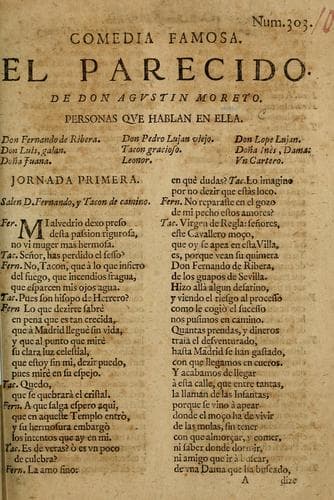 Num.303. 10
COMEDIA FAMOSA.
EL PARECIDO.
DE DON AGVSTIN MORETO.
PERSONAS QVE HABLAN EN ELLA.
Don Fernando de Ribera. Don Pedro Lujan viejo. Don Lope Lujan.
Don Luis, galan. Tacon gracioso. Doña Inès, Dama.
Doña Juana. Leonor. Vn Cartero.
JORNADA PRIMERA.
Salen D. Fernando, y Tacon de camino.
Fer. MAlvedrio dexo preso
desta passion rigurosa,
no vi muger mas hermosa.
Tac. Señor, has perdido el sesso?
Fern. No, Tacon, que à lo que infiero
del fuego, que incendios fragua,
que esparcen mis ojos agua.
Tac. Pues son hisopo de Herrero?
Fern. Lo que dezirte sabrè
en pena que es tan crecida,
que à Madrid lleguè sin vida,
y que al punto que mirè
su clara luz celestial,
que estoy sin mi, dezir puedo,
pues mirè en su espejo.
Tac. Quedo,
que se quebrarà el cristal.
Fern. A que salga espero aqui,
que en aqueste Templo entrò,
y su hermosura embargò
los intentos que ay en mi.
Tac. Es de veras? ò es vn poco
de culebra?
Fern. La amo sino:
en què dudas? Tac. Lo imagino
por no dezir que estàs loco.
Fern. No reparaste en el gozo
de mi pecho estos amores?
Tac. Virgen de Regla: señores,
este Cavallero moço,
que oy se apea en esta Villa,
es, porque vean su quimera
Don Fernando de Ribera,
de los guapos de Sevilla.
Hizo allà algun desatino,
y viendo el riesgo al processo
como le cogiò el sucesso
nos pusimos en camino.
Quantas prendas, y dineros
traìa el desventurado,
hasta Madrid se han gastado,
con que llegamos en cueros.
Y acabamos de llegar
à esta calle, que entre tantas,
la llaman de las Infantas;
porque se vino à apear
donde el moço ha de vivir
de las mulas, sin tener
con que almorçar, y comer,
ni saber donde dormir,
ni amigo que ir à buscar,
de vna Dama que ha buscado,
A dize